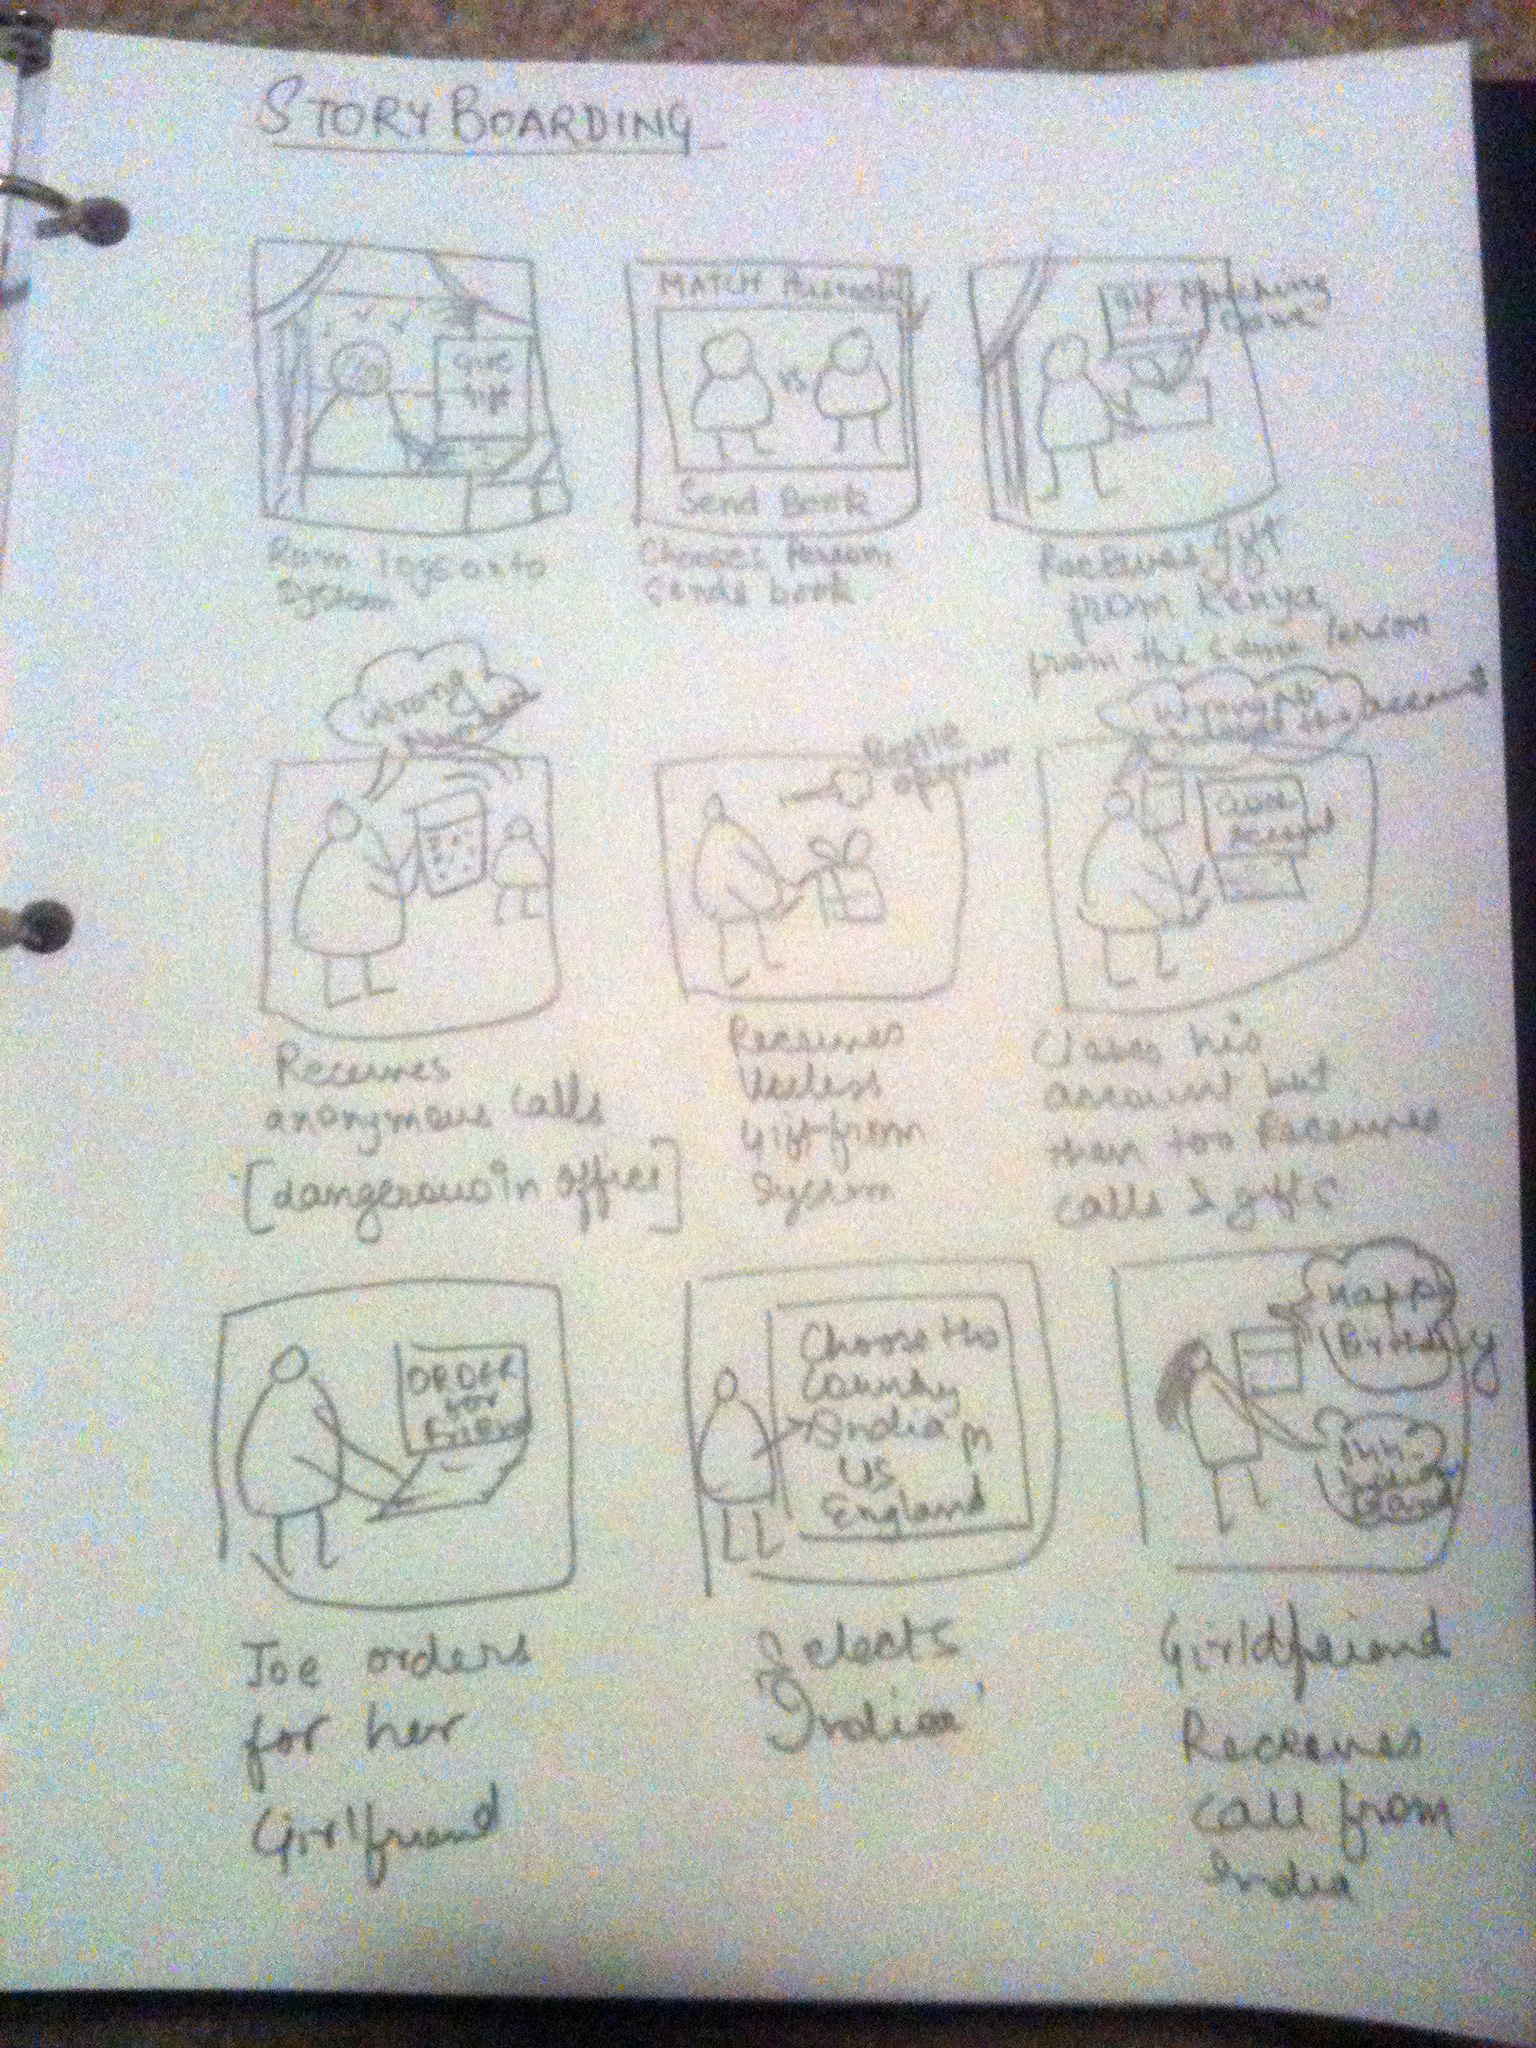 STORY BOARDING
Give
Gift
logs onto
System
MATCH
vs
Send Book
Chooses Person,
Sends book
Gift Matching
Done
Receives gift
from Kenya,
from the same Person
Wrong
Number
Receives
anonymous calls
[dangerous in office]
Bottle
opener
Receives
Useless
Gift from
System
account
Close
Account
Closes his
account but
then too Receives
calls & gifts
ORDER
for
friend
Joe orders
for her
Girlfriend
Choose the
Country
India
US
England
Selects
India
Happy
Birthday
Card
Girldfriend
Receives
call from
India